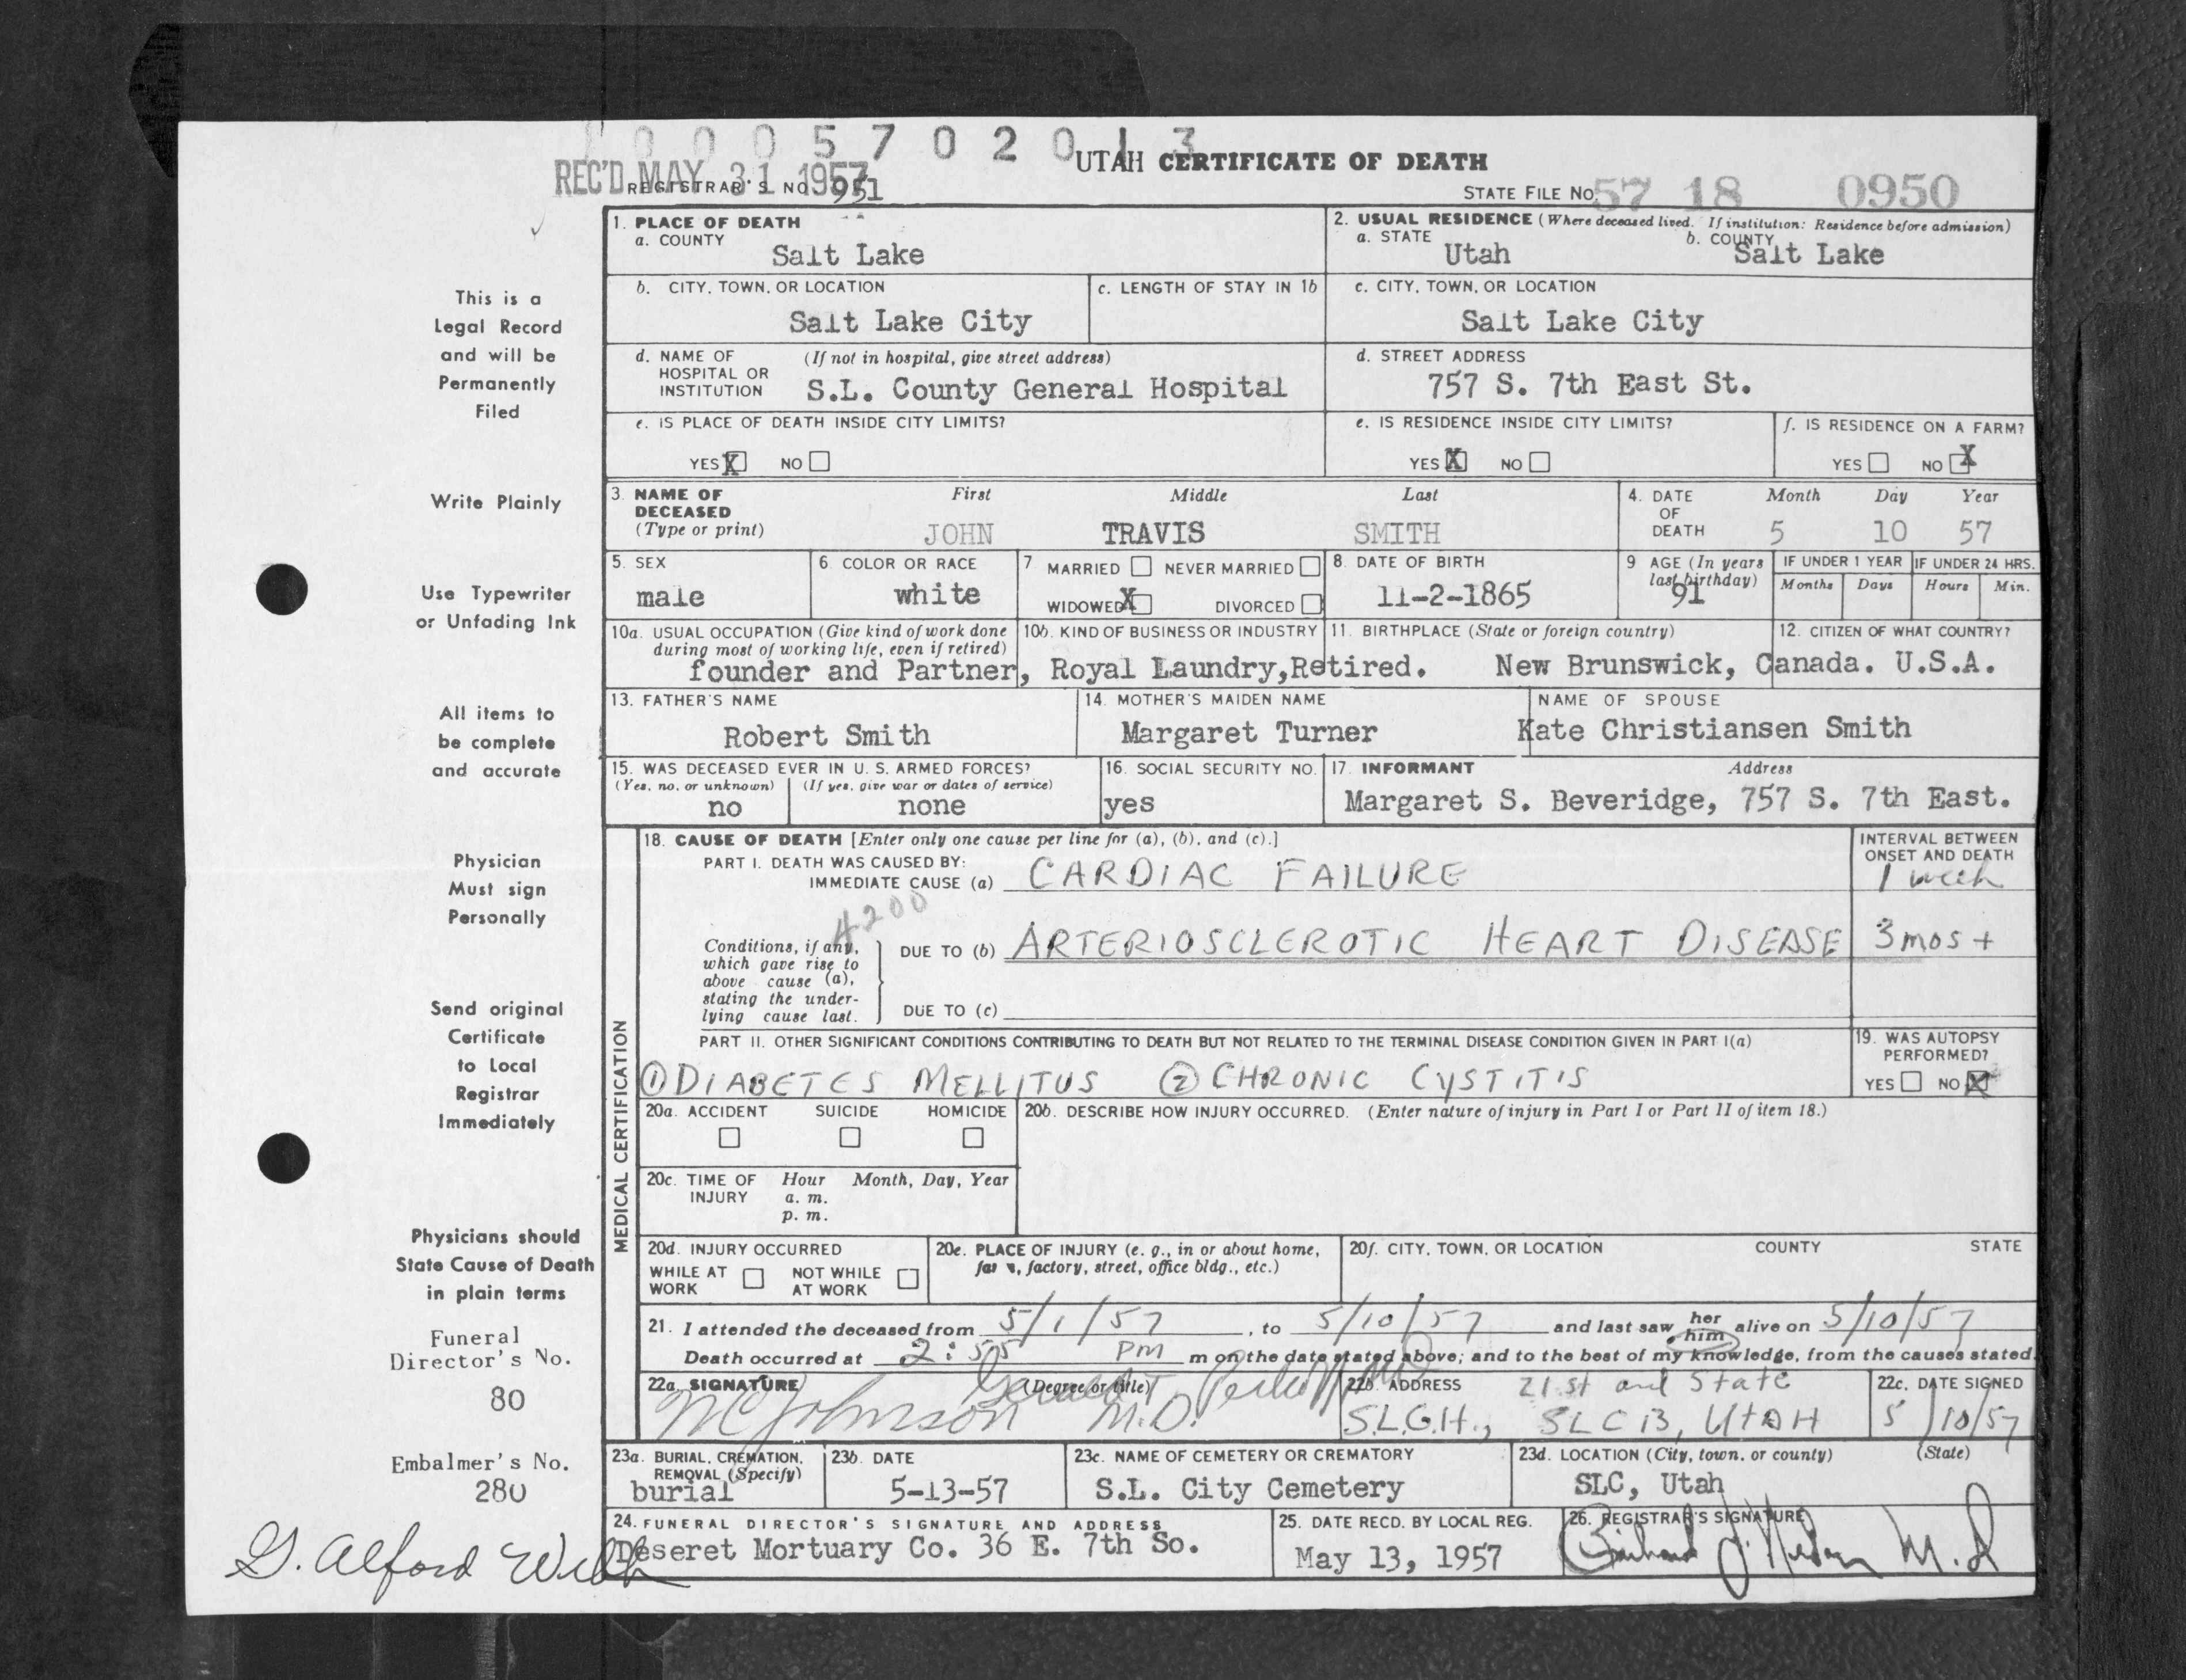 0 0 0 5 7 0 2 0 1 3
REC'D MAY 31 1957
UTAH CERTIFICATE OF DEATH
REGISTRAR'S NO. 951
STATE FILE NO. 57 18 0950
1. PLACE OF DEATH
a. COUNTY
Salt Lake
2. USUAL RESIDENCE (Where deceased lived. If institution: Residence before admission)
a. STATE b. COUNTY
Utah Salt Lake
b. CITY, TOWN, OR LOCATION
Salt Lake City
c. LENGTH OF STAY IN 1b
c. CITY, TOWN, OR LOCATION
Salt Lake City
d. NAME OF (If not in hospital, give street address)
HOSPITAL OR
INSTITUTION S.L. County General Hospital
d. STREET ADDRESS
757 S. 7th East St.
e. IS PLACE OF DEATH INSIDE CITY LIMITS?
YES X NO
e. IS RESIDENCE INSIDE CITY LIMITS?
YES X NO
f. IS RESIDENCE ON A FARM?
YES NO X
3. NAME OF First Middle Last
DECEASED
(Type or print) JOHN TRAVIS SMITH
4. DATE Month Day Year
OF
DEATH 5 10 57
5. SEX
male
6. COLOR OR RACE
white
7. MARRIED NEVER MARRIED
WIDOWED X DIVORCED
8. DATE OF BIRTH
11-2-1865
9. AGE (In years
last birthday)
91
IF UNDER 1 YEAR
Months Days
IF UNDER 24 HRS.
Hours Min.
10a. USUAL OCCUPATION (Give kind of work done
during most of working life, even if retired)
10b. KIND OF BUSINESS OR INDUSTRY
11. BIRTHPLACE (State or foreign country)
12. CITIZEN OF WHAT COUNTRY?
founder and Partner, Royal Laundry,Retired. New Brunswick, Canada. U.S.A.
13. FATHER'S NAME
Robert Smith
14. MOTHER'S MAIDEN NAME
Margaret Turner
NAME OF SPOUSE
Kate Christiansen Smith
15. WAS DECEASED EVER IN U. S. ARMED FORCES?
(Yes, no, or unknown) (If yes, give war or dates of service)
no none
16. SOCIAL SECURITY NO.
yes
17. INFORMANT Address
Margaret S. Beveridge, 757 S. 7th East.
MEDICAL CERTIFICATION
18. CAUSE OF DEATH [Enter only one cause per line for (a), (b), and (c).]
PART I. DEATH WAS CAUSED BY:
IMMEDIATE CAUSE (a) CARDIAC FAILURE
INTERVAL BETWEEN
ONSET AND DEATH
1 week
4200
Conditions, if any,
which gave rise to
above cause (a),
stating the under-
lying cause last.
DUE TO (b) ARTERIOSCLEROTIC HEART DISEASE 3 mos +
DUE TO (c)
PART II. OTHER SIGNIFICANT CONDITIONS CONTRIBUTING TO DEATH BUT NOT RELATED TO THE TERMINAL DISEASE CONDITION GIVEN IN PART I(a)
① DIABETES MELLITUS ② CHRONIC CYSTITIS
19. WAS AUTOPSY
PERFORMED?
YES NO X
20a. ACCIDENT SUICIDE HOMICIDE
20b. DESCRIBE HOW INJURY OCCURRED. (Enter nature of injury in Part I or Part II of item 18.)
20c. TIME OF Hour Month, Day, Year
INJURY a. m.
p. m.
20d. INJURY OCCURRED
WHILE AT NOT WHILE
WORK AT WORK
20e. PLACE OF INJURY (e. g., in or about home,
farm, factory, street, office bldg., etc.)
20f. CITY, TOWN, OR LOCATION COUNTY STATE
21. I attended the deceased from 5/1/57, to 5/10/57 and last saw her him alive on 5/10/57
Death occurred at 2:55 PM m on the date stated above; and to the best of my knowledge, from the causes stated.
22a. SIGNATURE (Degree or title)
Johnson M.D.
22b. ADDRESS 21st and State
S.L.G.H., SLC 13, UTAH
22c. DATE SIGNED
5/10/57
23a. BURIAL, CREMATION,
REMOVAL (Specify)
burial
23b. DATE
5-13-57
23c. NAME OF CEMETERY OR CREMATORY
S.L. City Cemetery
23d. LOCATION (City, town, or county) (State)
SLC, Utah
24. FUNERAL DIRECTOR'S SIGNATURE AND ADDRESS
Deseret Mortuary Co. 36 E. 7th So.
25. DATE RECD. BY LOCAL REG.
May 13, 1957
26. REGISTRAR'S SIGNATURE
M.D
This is a
Legal Record
and will be
Permanently
Filed
Write Plainly
Use Typewriter
or Unfading Ink
All items to
be complete
and accurate
Physician
Must sign
Personally
Send original
Certificate
to Local
Registrar
Immediately
Physicians should
State Cause of Death
in plain terms
Funeral
Director's No.
80
Embalmer's No.
280
G. Alford